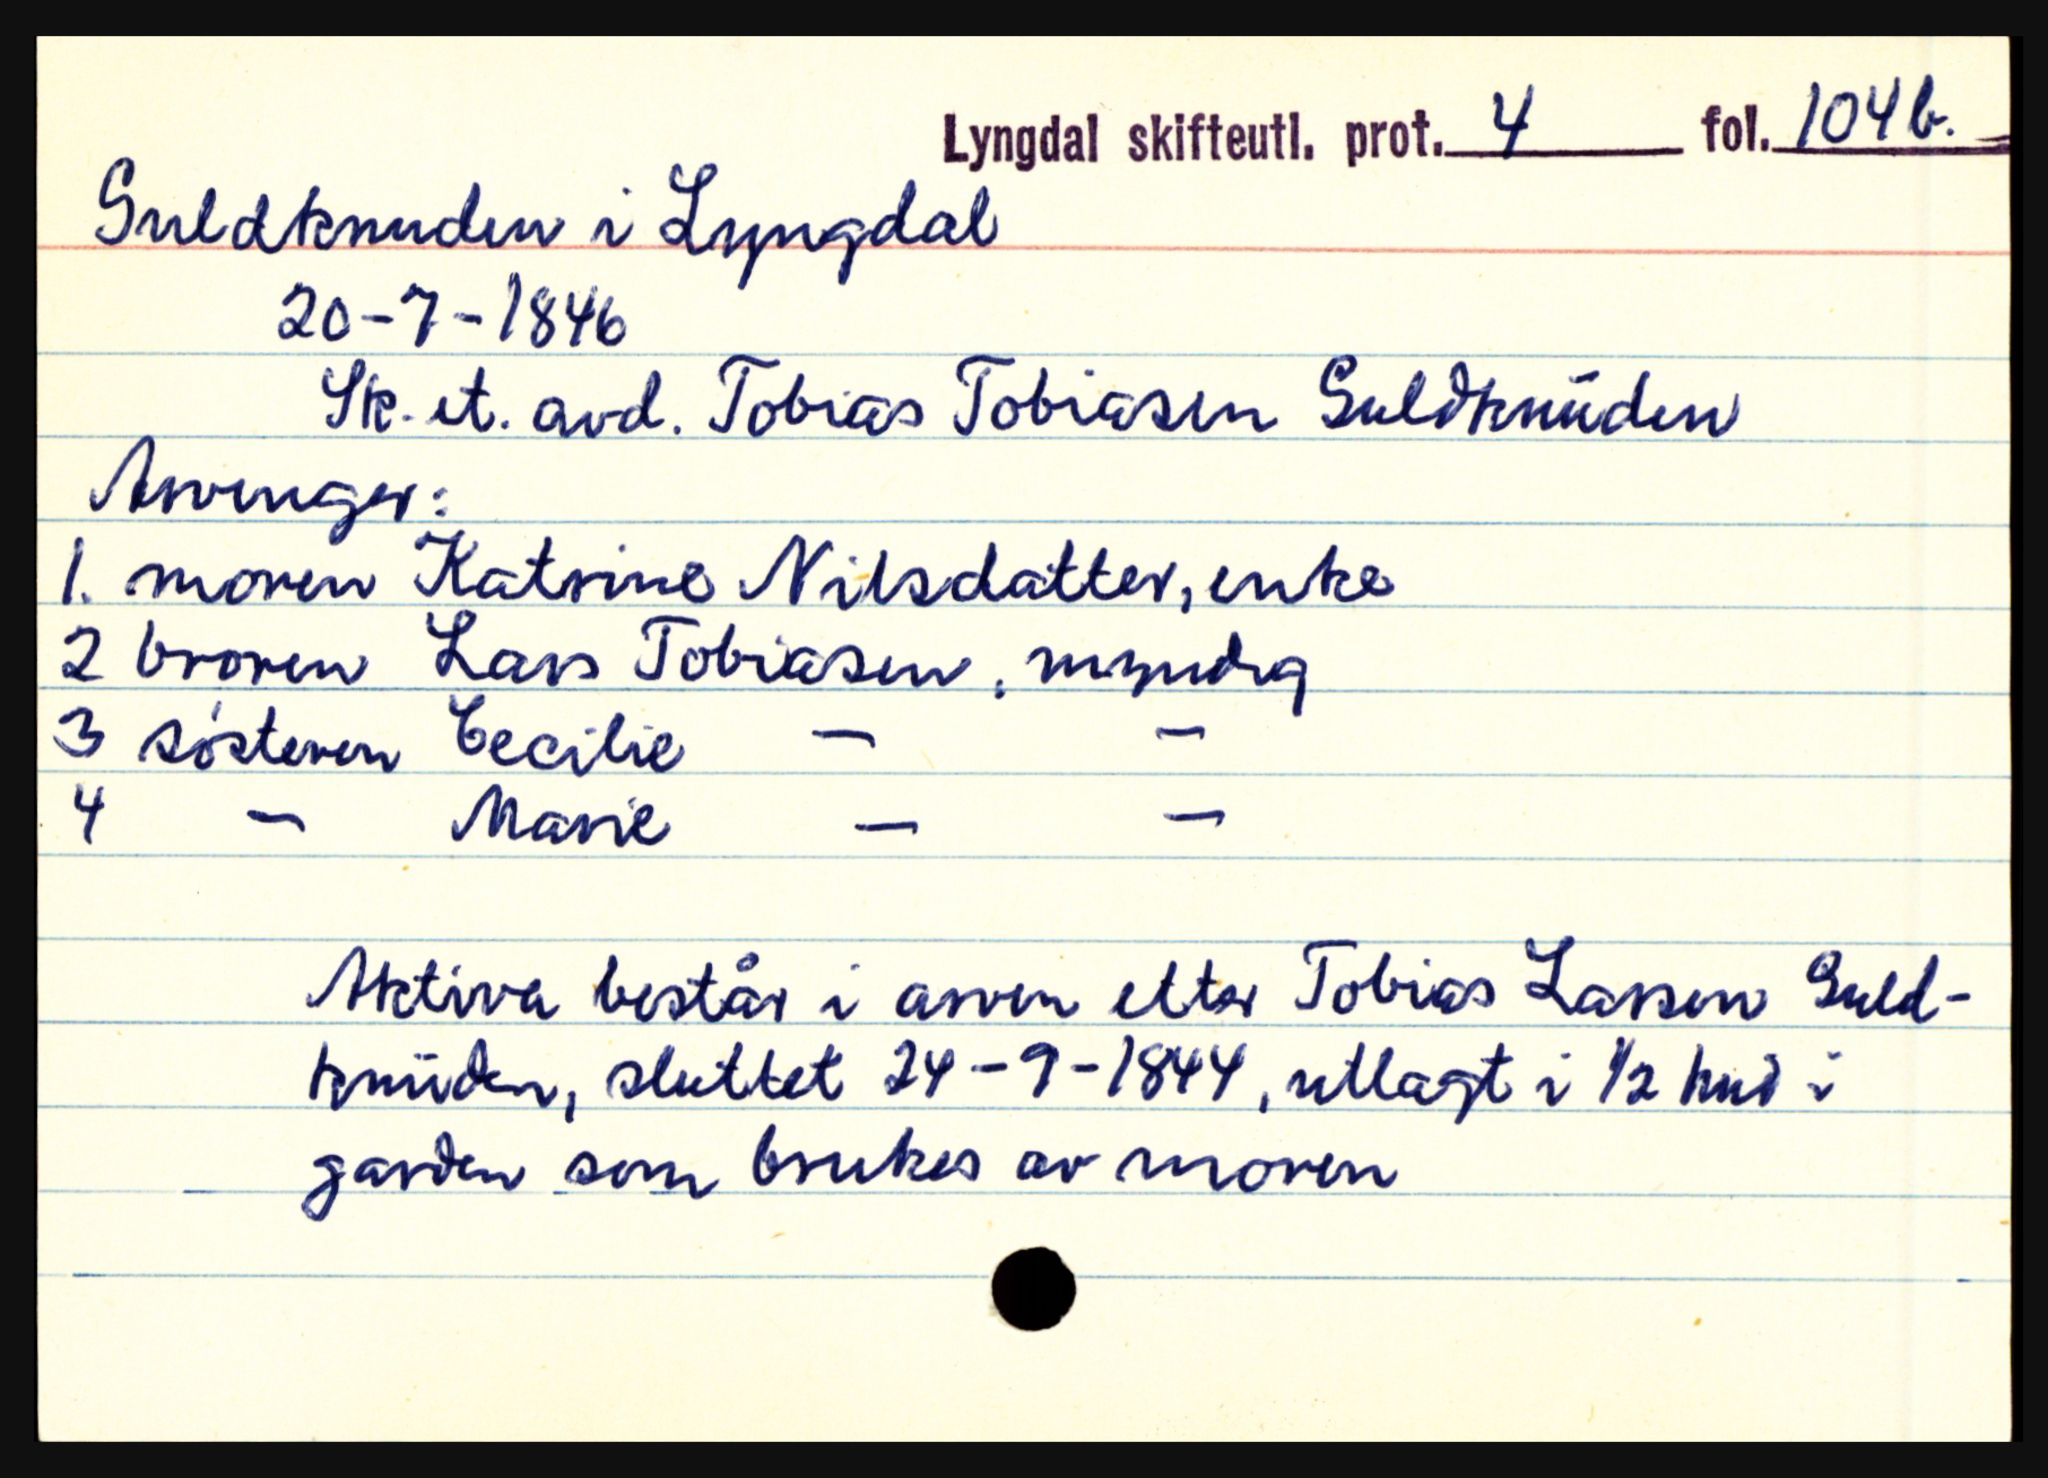 Lyngdal skifteutl. prot. 4 fol. 104b.
Guldknuden i Lyngdal
20-7-1846
Sk. et. avd. Tobias Tobiasen Guldknuden
Arvinger:
1. moren Katrine Nilsdatter, enke
2 broren Lars Tobiasen, myndig
3 søsteren Cecilie — —
4 — Marie — —
Aktiva består i arven etter Tobias Larsen Guld-
knuden, sluttet 24-9-1844, utlagt i 1/2 hud i
garden som brukes av moren